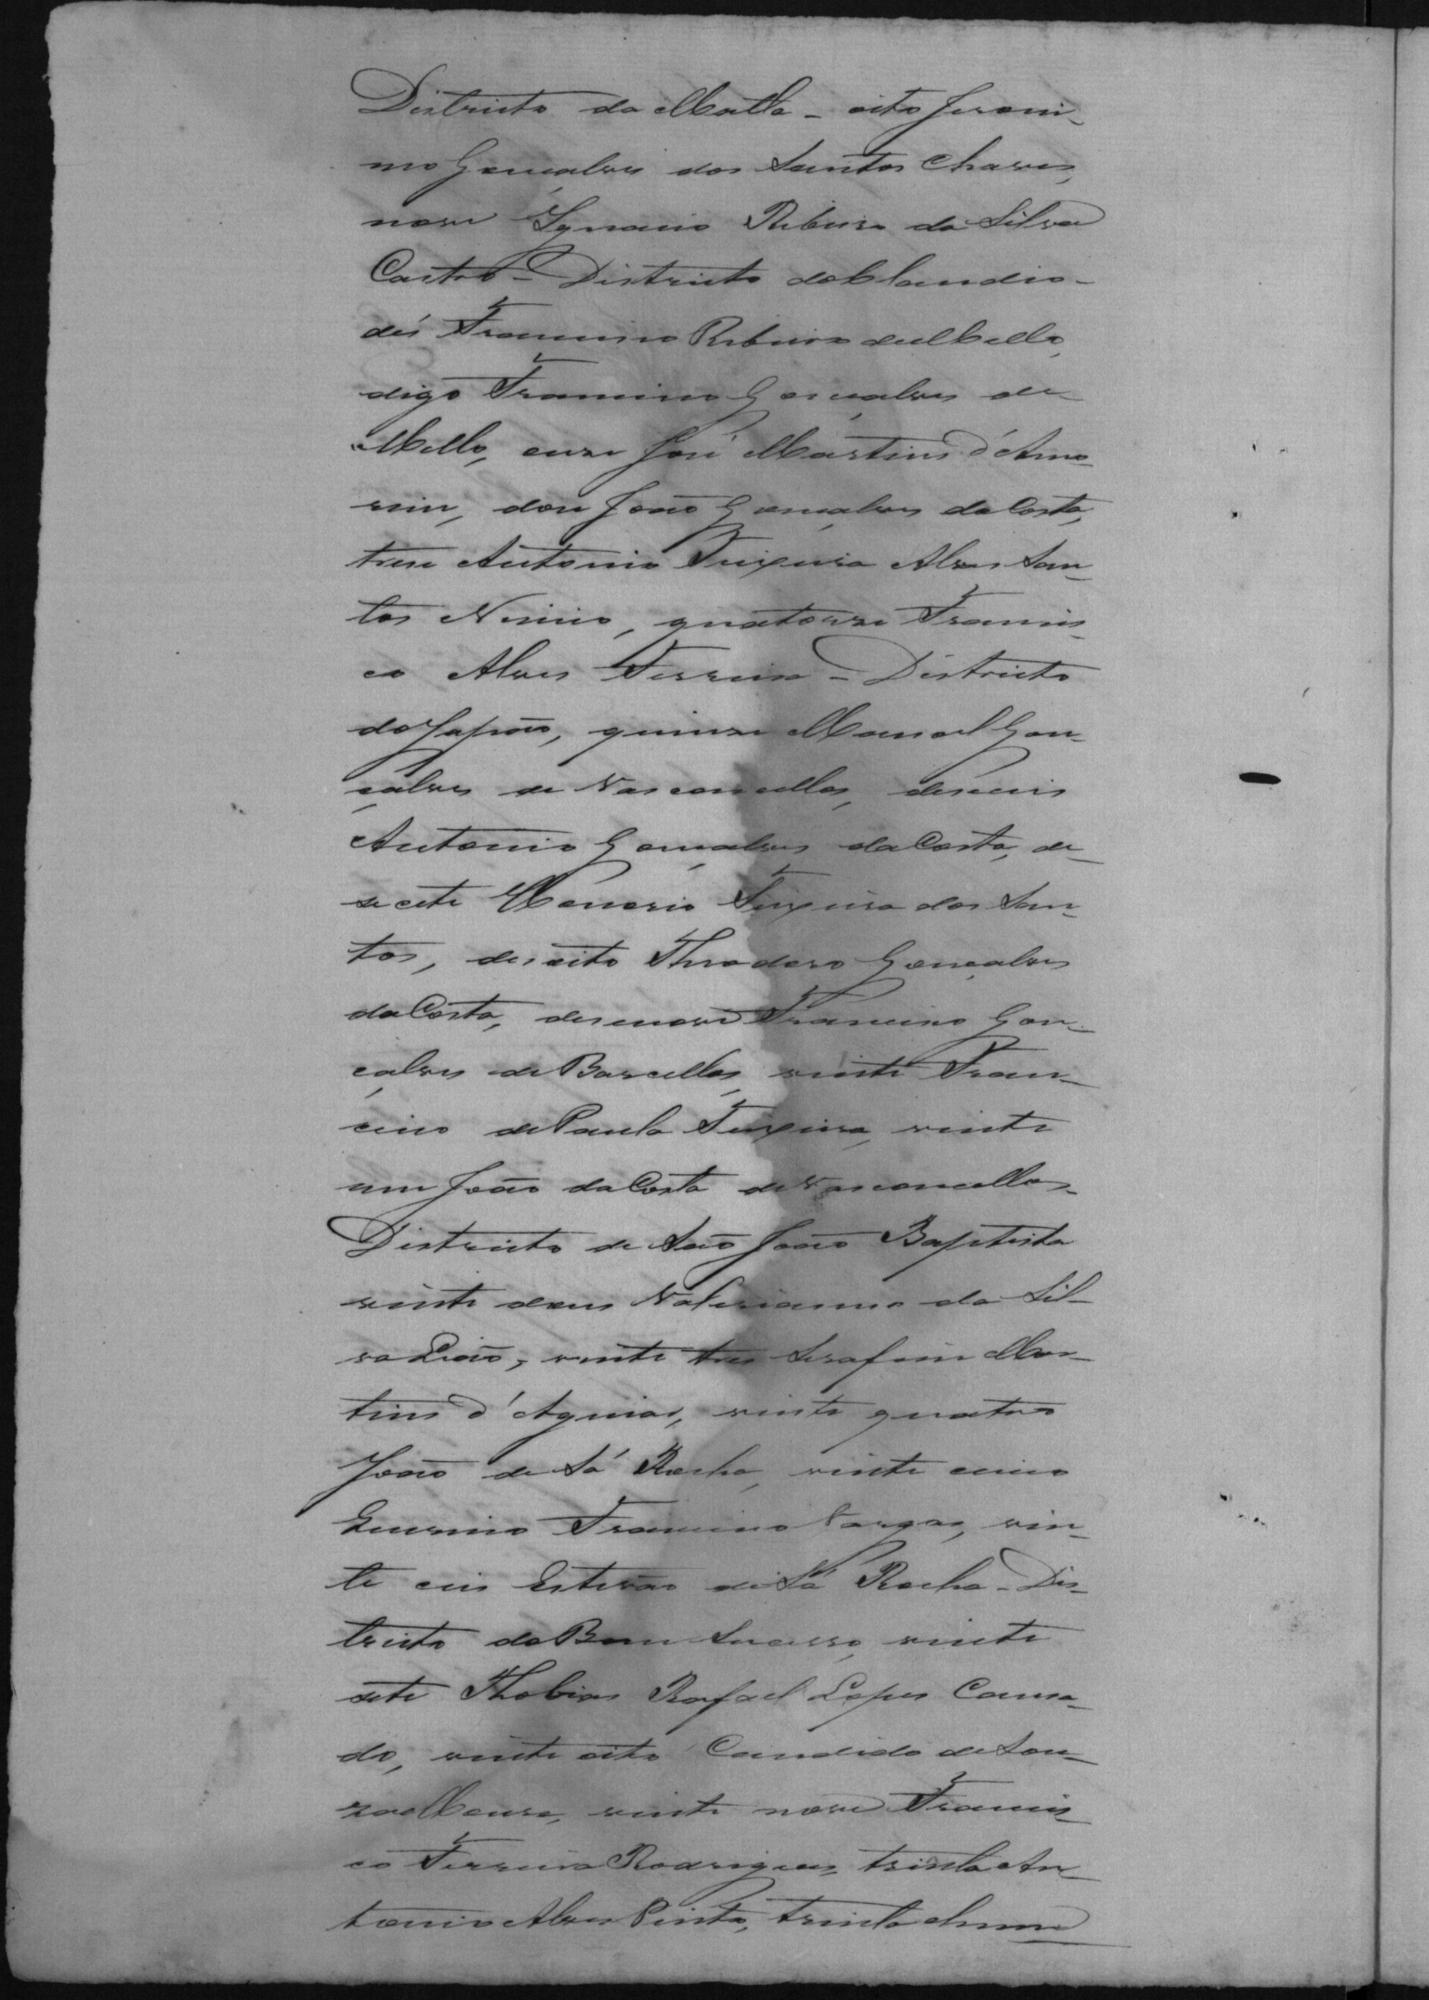 Districto da Matta - oito Jeroni-
mo Gonçalves dos Santos Chaves,
nove Ignacio Ribeiro da Silva
Castro - Districto de Claudio -
dés Francisco Ribeiro de Mello,
digo Francisco Gonçalves de
Mello, onze José Martins d'Amo-
rim, dose João Gonçalves da Costa,
trese Antonio Teixeira Alves San-
tos Nisio, quatorze Francis-
co Alves Ferreira - Districto
do Japão, quinze Manoel Gon-
çalves de Vasconcellos, deseseis
Antonio Gonçalves da Costa, de-
secete Honorio Teixeira dos San-
tos, desoito Theodoro Gonçalves
da Costa, desenove Francisco Gon-
çalves de Barcellos, vinte Fran-
cisco de Paula Teixeira, vinte
um João da Costa de Vasconcellos -
Districto de São João Baptista
vinte dous Valerianno da Sil-
va Leão, vinte tres Serafim Mar-
tins d'Aguiar, vinte quatro
João de Sá Rocha, vinte cinco
Francisco Vargas, vin-
te ceis Estevão de Sá Rocha - Dis-
tricto do Bom Sucesso, vinte
sete Thobias Rafael Lopes Cansa-
do, vinte oito Candido de Sou-
za Moura, vinte nove Francis-
co Ferreira Rodrigues, trinta An-
tonio Alves Pinto, trinta e hum